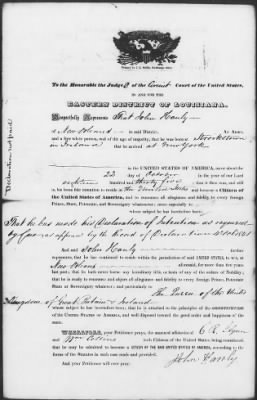 To the Honorable the Judge of the Circuit Court of the United States,
IN AND FOR THE
EASTERN DISTRICT OF LOUISIANA.
Respectfully Represents That John Hanly
of New Orleans in said District, An Alien,
and a free white person, of the age of majority, that he was born at Brookstown
in Ireland that he arrived at New York
in the UNITED STATES OF AMERICA, on or about the
22 day of October in the year of our Lord
eighteen hundred and thirty five that it then was, and still
is, his bona fide intention to reside in the United States and become a Citizen of
the United States of America, and to renounce all allegiance and fidelity to every foreign Prince,
Potentate, State and Sovereignty, and more especially to
whose subject he has heretofore been;
That he has made his Declaration of Intention as required
by law as appear by the Record of
And said John Hanly further
represents, that he has continued to reside within the jurisdiction of the UNITED STATES, to wit, at
New Orleans aforesaid, for more than five years
last past; that he hath never borne any hereditary title, or been of any of the orders of Nobility;
that he is ready to renounce and abjure all allegiance and fidelity to every foreign Prince, Potentate,
State or Sovereignty whatever; and particularly to The Queen of the United
Kingdom of Great Britain & Ireland
whose subject he has heretofore been; that he is attached to the principles of the CONSTITUTION OF THE
UNITED STATES OF AMERICA, and well disposed toward the good order and happiness of
the same.
WHEREFORE, your Petitioner prays, the annexed affidavits of
and Wm Collins such Citizens of the United States being considered,
that he may be admitted to become a CITIZEN OF THE SAID UNITED STATES OF AMERICA, according to the
forms of the Statutes in such case made and provided.
And your Petitioner will ever pray, &c.
John Hanly
Declaration not paid